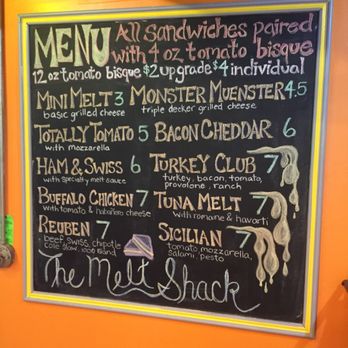 MENU All Sandwiches paired
with 4 oz tomato bisque
12 oz tomato bisque $2 upgrade $4 individual
MINI MELT 3 MONSTER MUENSTER 4.5
basic grilled cheese triple decker grilled cheese
TOTALLY TOMATO 5 BACON CHEDDAR 6
with mozzarella
HAM & SWISS 6 TURKEY CLUB 7
with specialty melt sauce turkey, bacon, tomato,
provolone, ranch
BUFFALO CHICKEN 7 TUNA MELT 7
with tomato & habañero cheese with romaine & havarti
REUBEN 7 SICILIAN 7
beef, swiss, chipotle tomato, mozzarella,
cole slaw, 1000 island salami, pesto
The Melt Shack